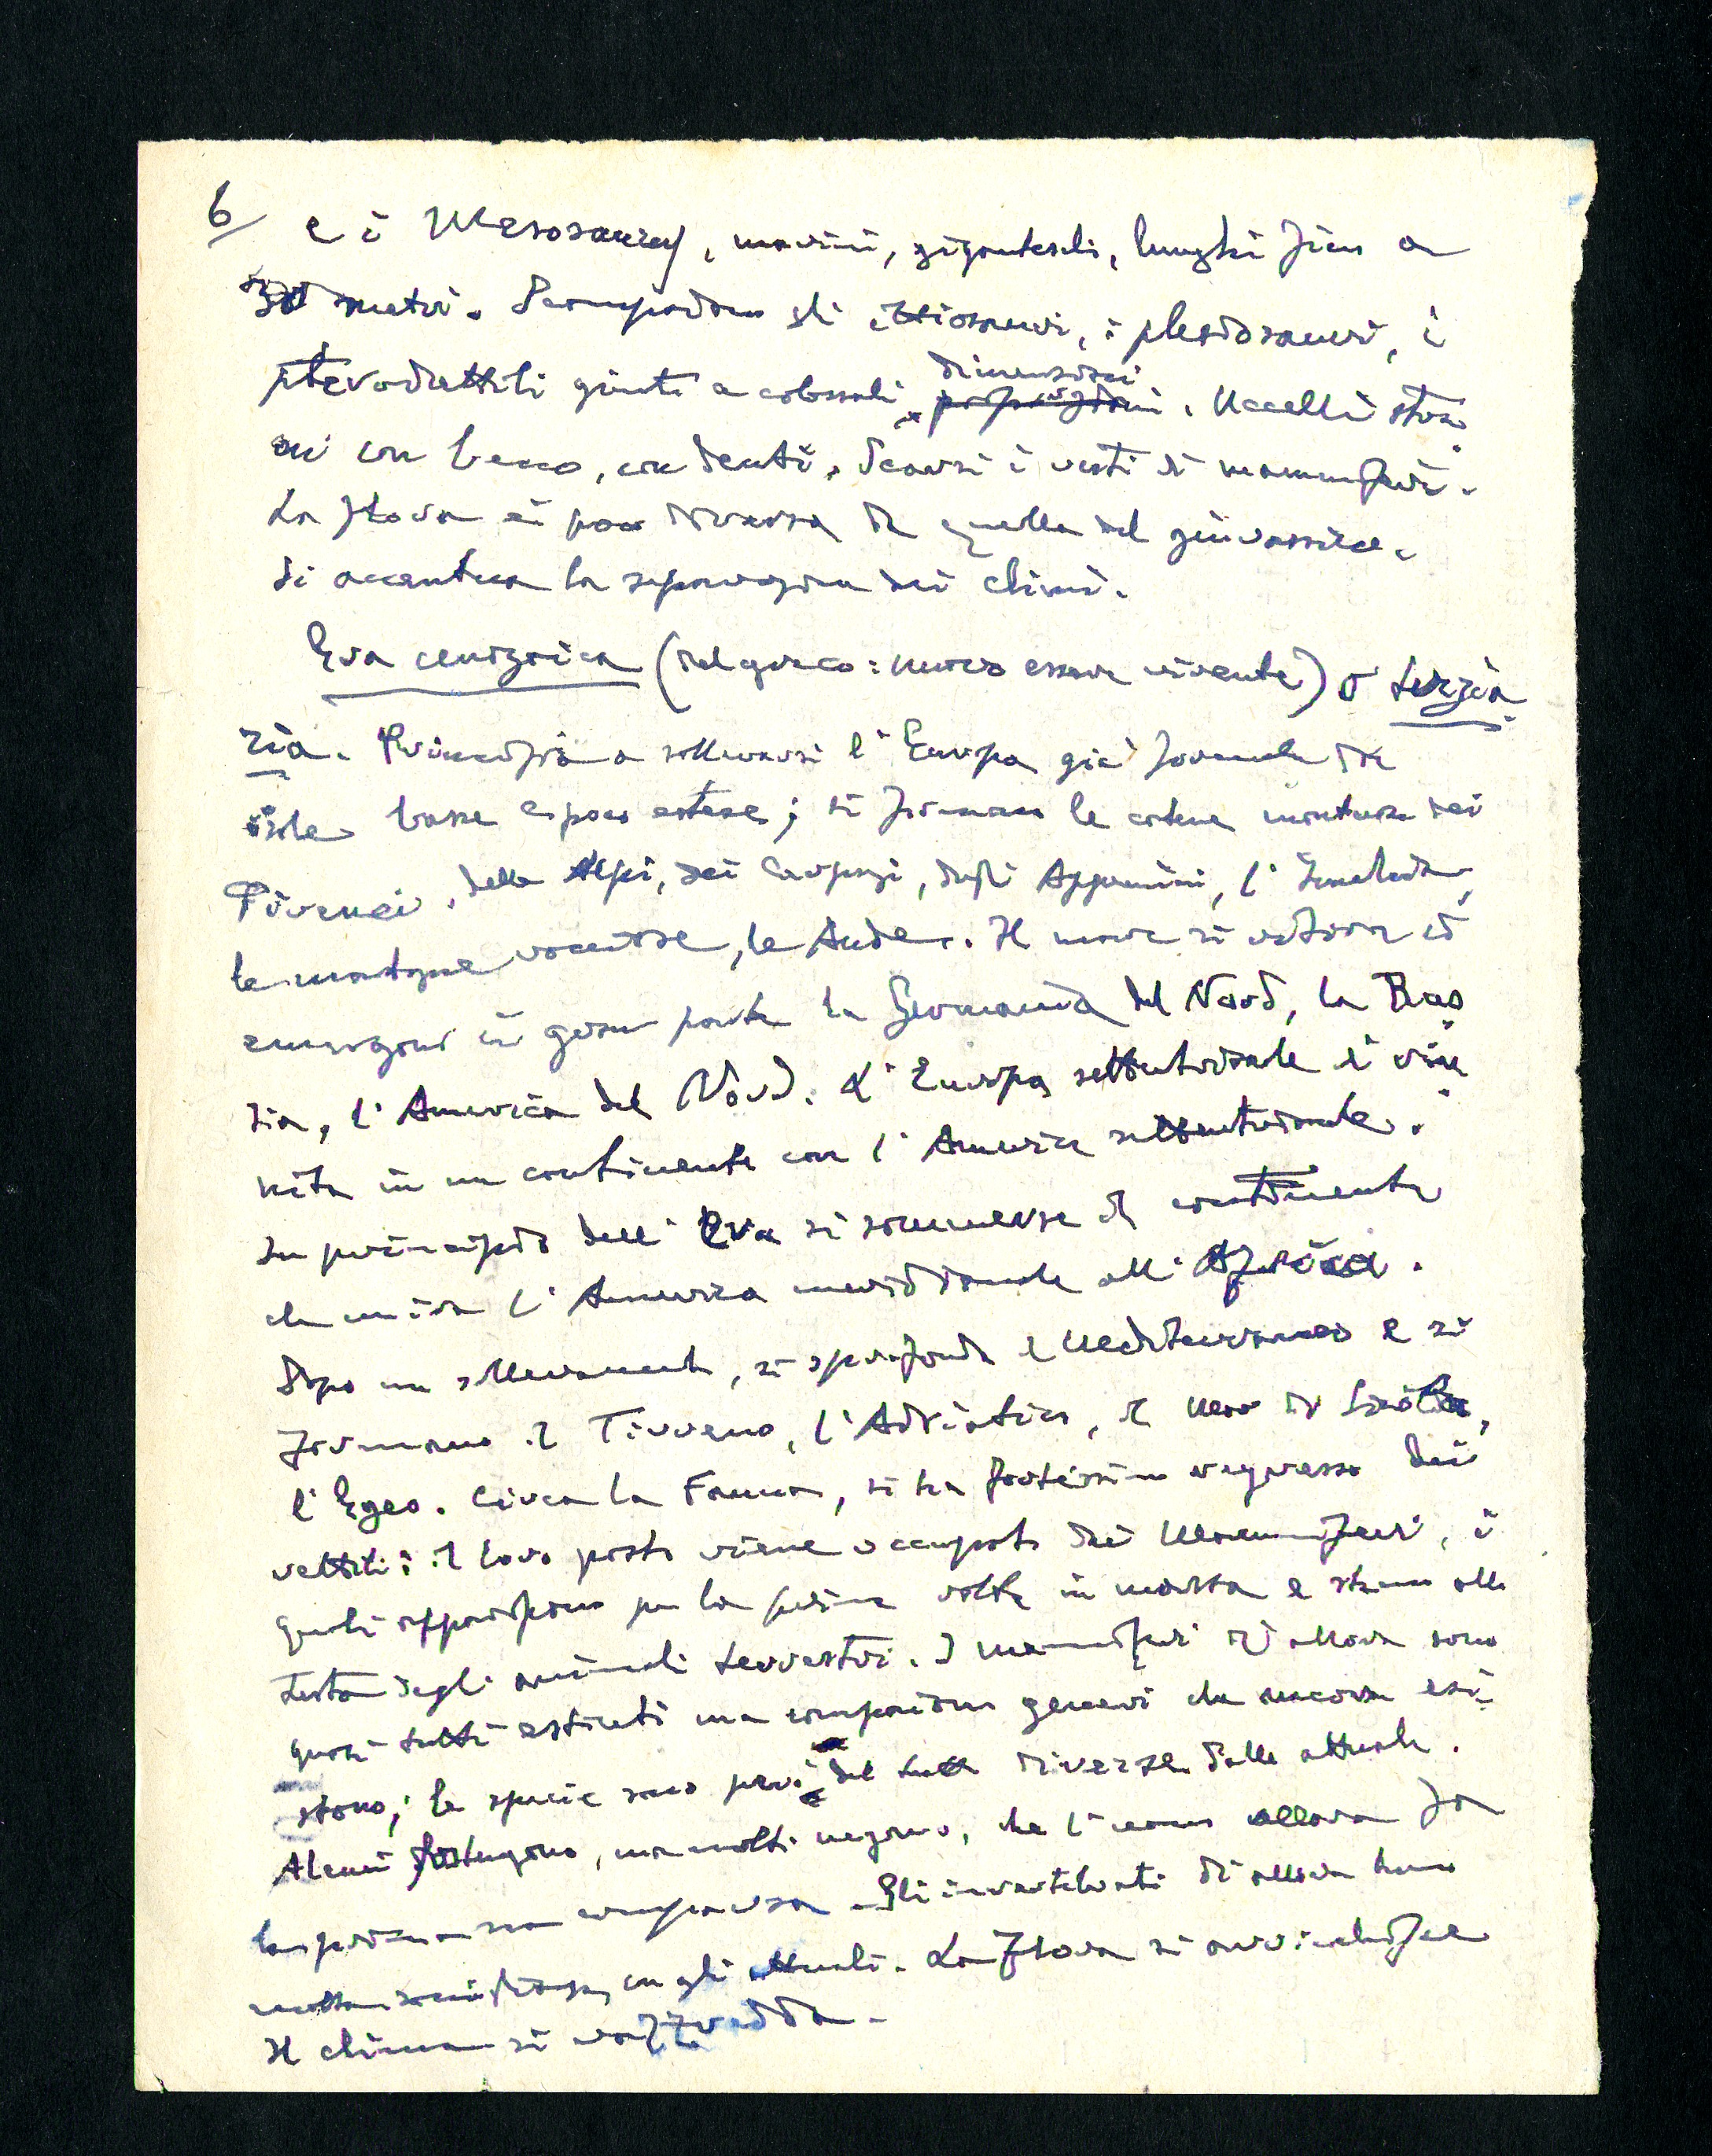 6/ e i Mesosauri, marini, giganteschi, lunghi fino a
30 metri. Scompaiono gli ittiosauri, i plesiosauri, i
dimensioni
pterodattili giunti a colossali proporzioni. Uccelli stra=
ni con becco, con denti. Scarsi i resti di mammiferi.
La flora è poco diversa da quella del giurassico.
Si accentua la separazione dei climi.
Era cenozoica (dal greco: nuovo essere vivente) o terzia=
ria. Principia a sollevarsi l'Europa già formata da
isole basse e poco estese; si formano le catene montuose dei
Pirenei, delle Alpi, dei Carpazi, degli Appennini, l'Imalaia,
le montagne rocciose, le Ande. Il mare si ritira ed
emergono in gran parte la Germania del Nord, la Rus=
sia, l'America del Nord. L'Europa settentrionale è riu=
nita in un continente con l'America settentrionale.
In principio dell'Era si sommerse il continente
che univa l'America meridionale all'Africa.
Dopo un sollevamento, si sprofonda il Mediterraneo e si
formano il Tirreno, l'Adriatico, il Mare di Sicilia,
l'Egeo. Circa la Fauna, si ha fortissimo regresso dei
rettili: il loro posto viene occupato dai Mammiferi, i
quali appariscono per la prima volta in massa e stanno alla
testa degli animali terrestri. I mammiferi d'allora sono
quasi tutti estinti ma compaiono generi che ancora esi=
stono; le specie sono però del tutto diverse dalle attuali.
Alcuni sostengono, ma molti negano, che l'uomo allora fa
la prima sua comparsa. Gli invertebrati di allora hanno
molta somiglianza con gli attuali. La flora si arricchisce
Il clima si raffredda.